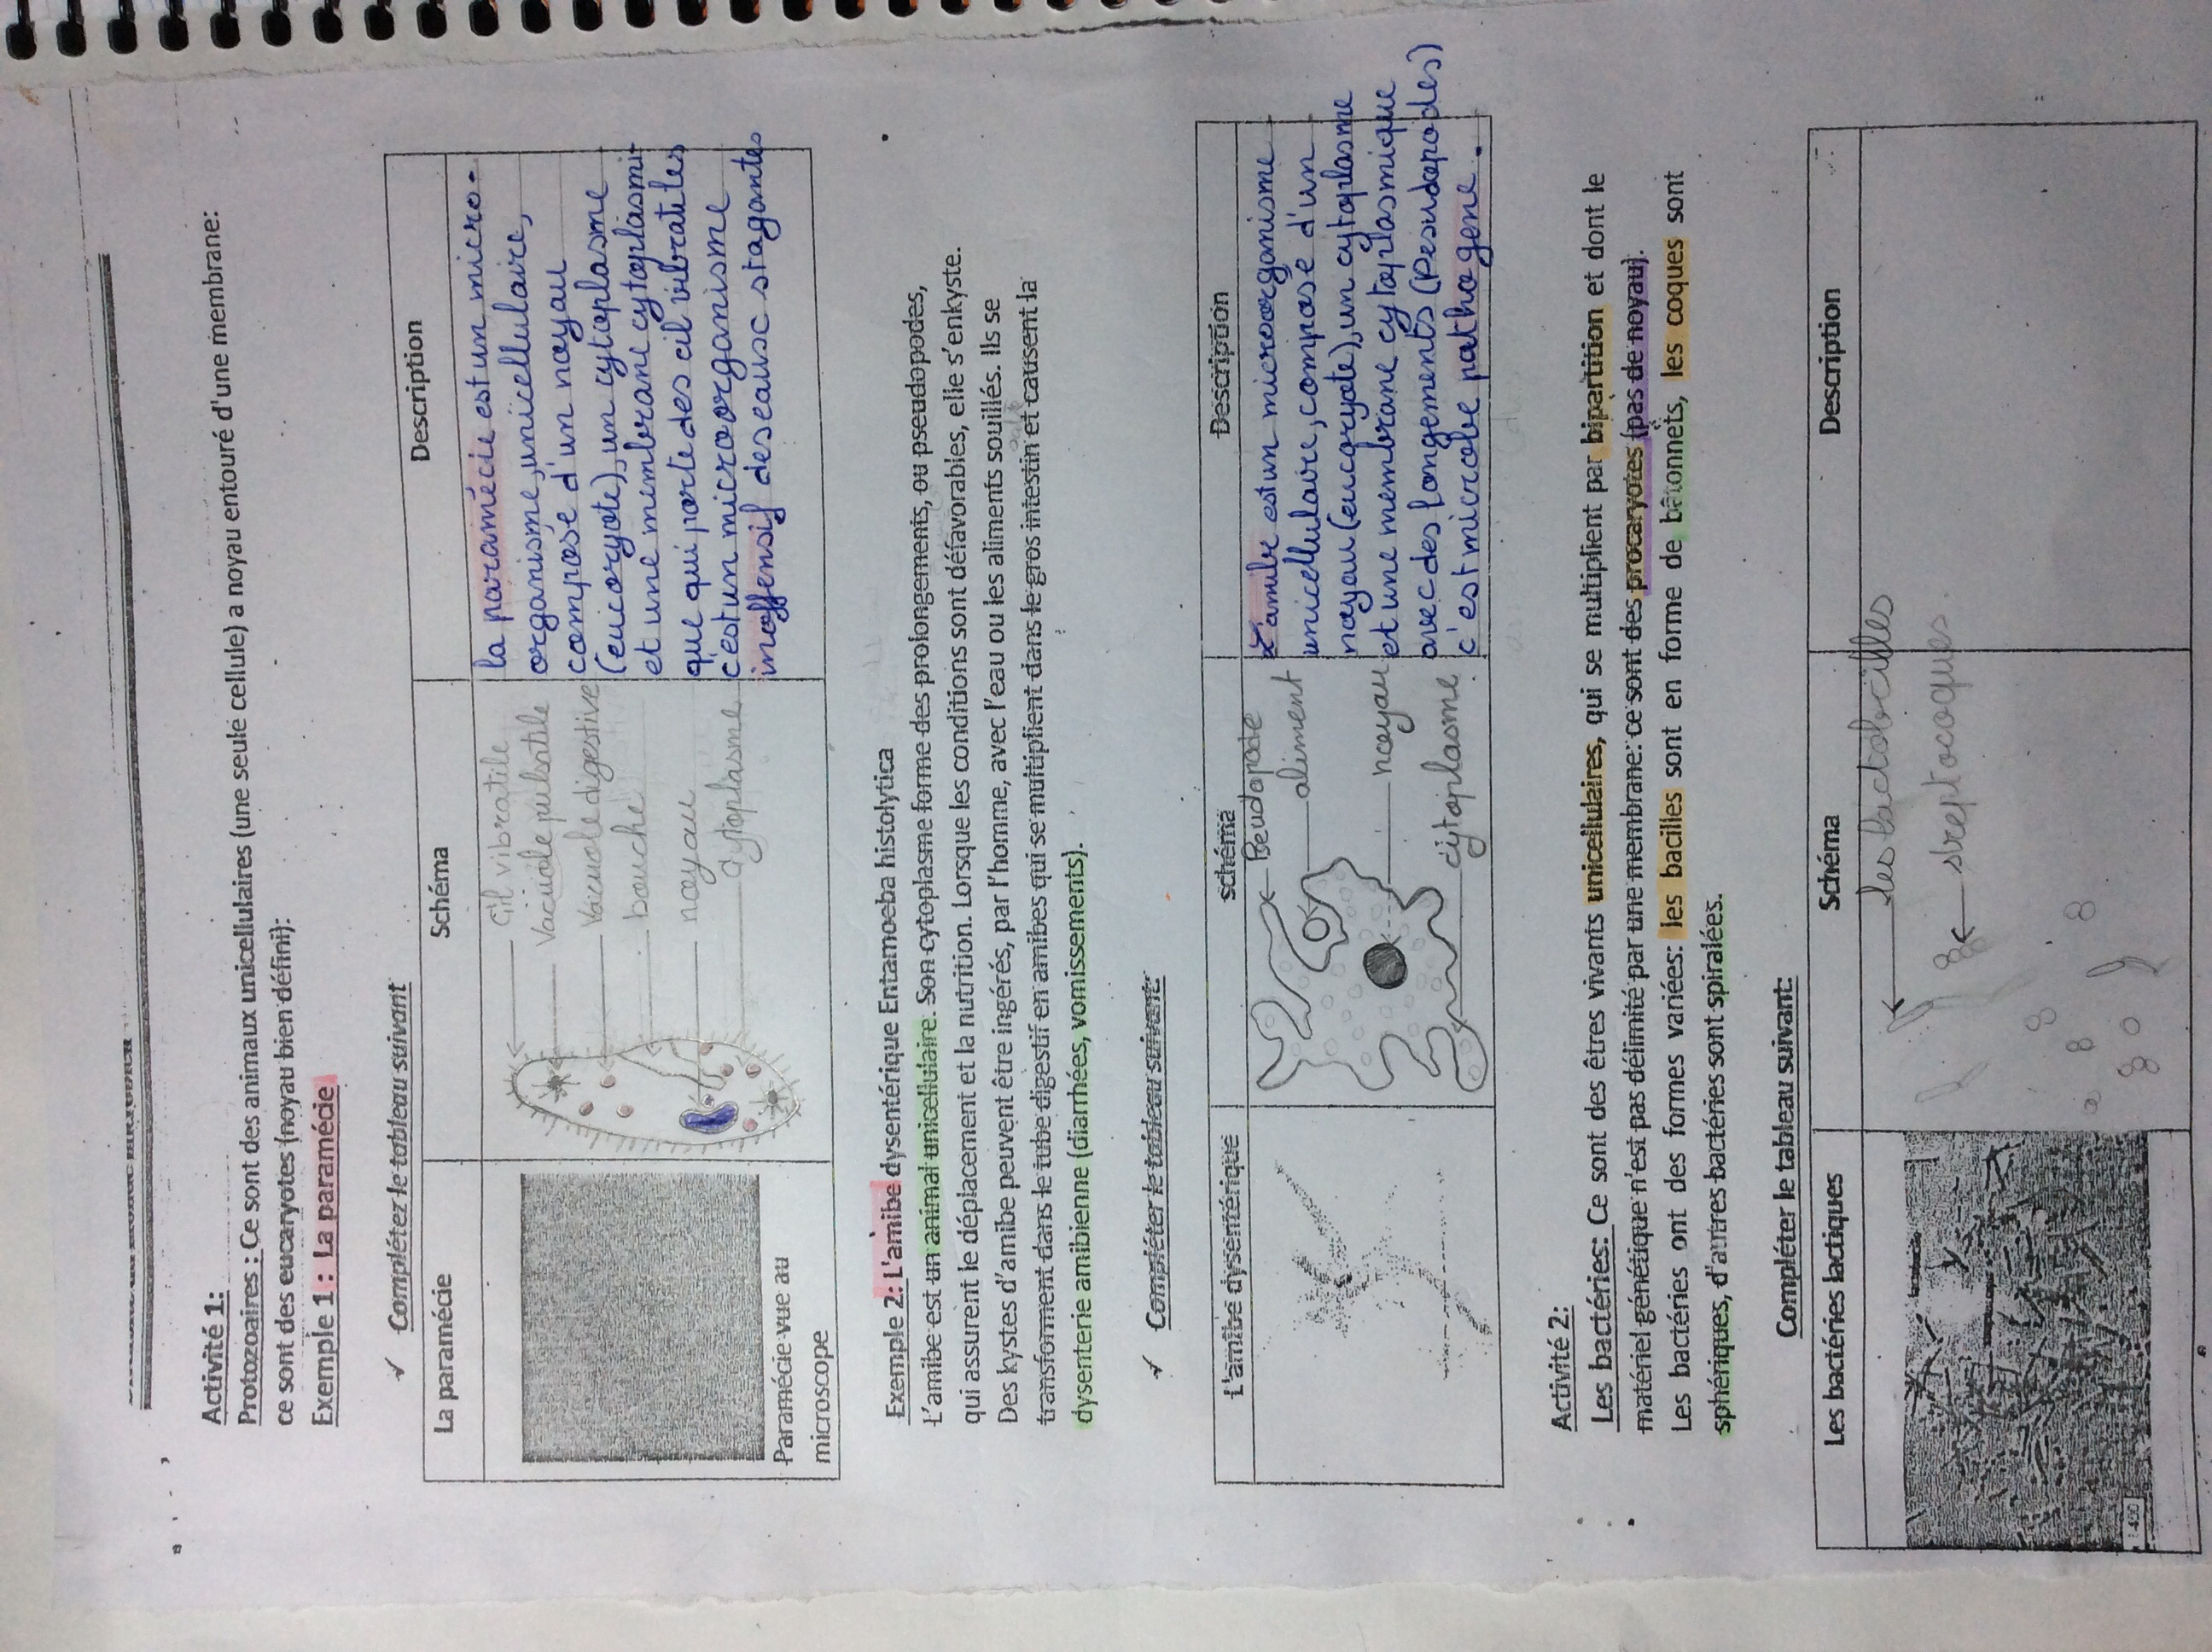 Activité 1:
Protozoaires : Ce sont des animaux unicellulaires (une seule cellule) a noyau entouré d'une membrane:
ce sont des eucaryotes (noyau bien défini):
Exemple 1 : La paramécie
✓ Complétez le tableau suivant
La paramécie
Schéma
Description
Paramécie vue au
microscope
Cil vibratile
Vacuole pulsatile
Vacuole digestive
bouche
noyau
cytoplasme
la paramécie est un micro-
organisme, unicellulaire,
compose d'un noyau
(eucoryote), un cytoplasme
et une membrane cytoplasmi-
que qui porte des cil vibratiles
c'est un microorganisme
inoffensif des eaux stagantes
Exemple 2: L'amibe dysentérique Entamoeba histolytica
L'amibe est un animal unicellulaire. Son cytoplasme forme des prolongements, ou pseudopodes,
qui assurent le déplacement et la nutrition. Lorsque les conditions sont défavorables, elle s'enkyste.
Des kystes d'amibe peuvent être ingérés, par l'homme, avec l'eau ou les aliments souillés. Ils se
transforment dans le tube digestif en amibes qui se multiplient dans le gros intestin et causent la
dysenterie amibienne (diarrhées, vomissements).
✓ Compléter le tableau suivant:
L'amibe dysentérique
schéma
Description
Pseudopode
aliment
noyau
cytoplasme
L'amibe est un microorganisme
unicellulaire, compose d'un
noyau (eucaryote), un cytoplasme
et une membrane cytoplasmique
avec des longements (Pesudopodes)
c'est microbe pathogene.
Activité 2:
Les bactéries: Ce sont des êtres vivants unicellulaires, qui se multiplient par bipartition et dont le
matériel génétique n'est pas délimité par une membrane: ce sont des procaryotes (pas de noyau).
Les bactéries ont des formes variées: les bacilles sont en forme de bâtonnets, les coques sont
sphériques, d'autres bactéries sont spiralées.
Compléter le tableau suivant:
Les bactéries lactiques
Schéma
Description
les lactobacilles
streptocoques.